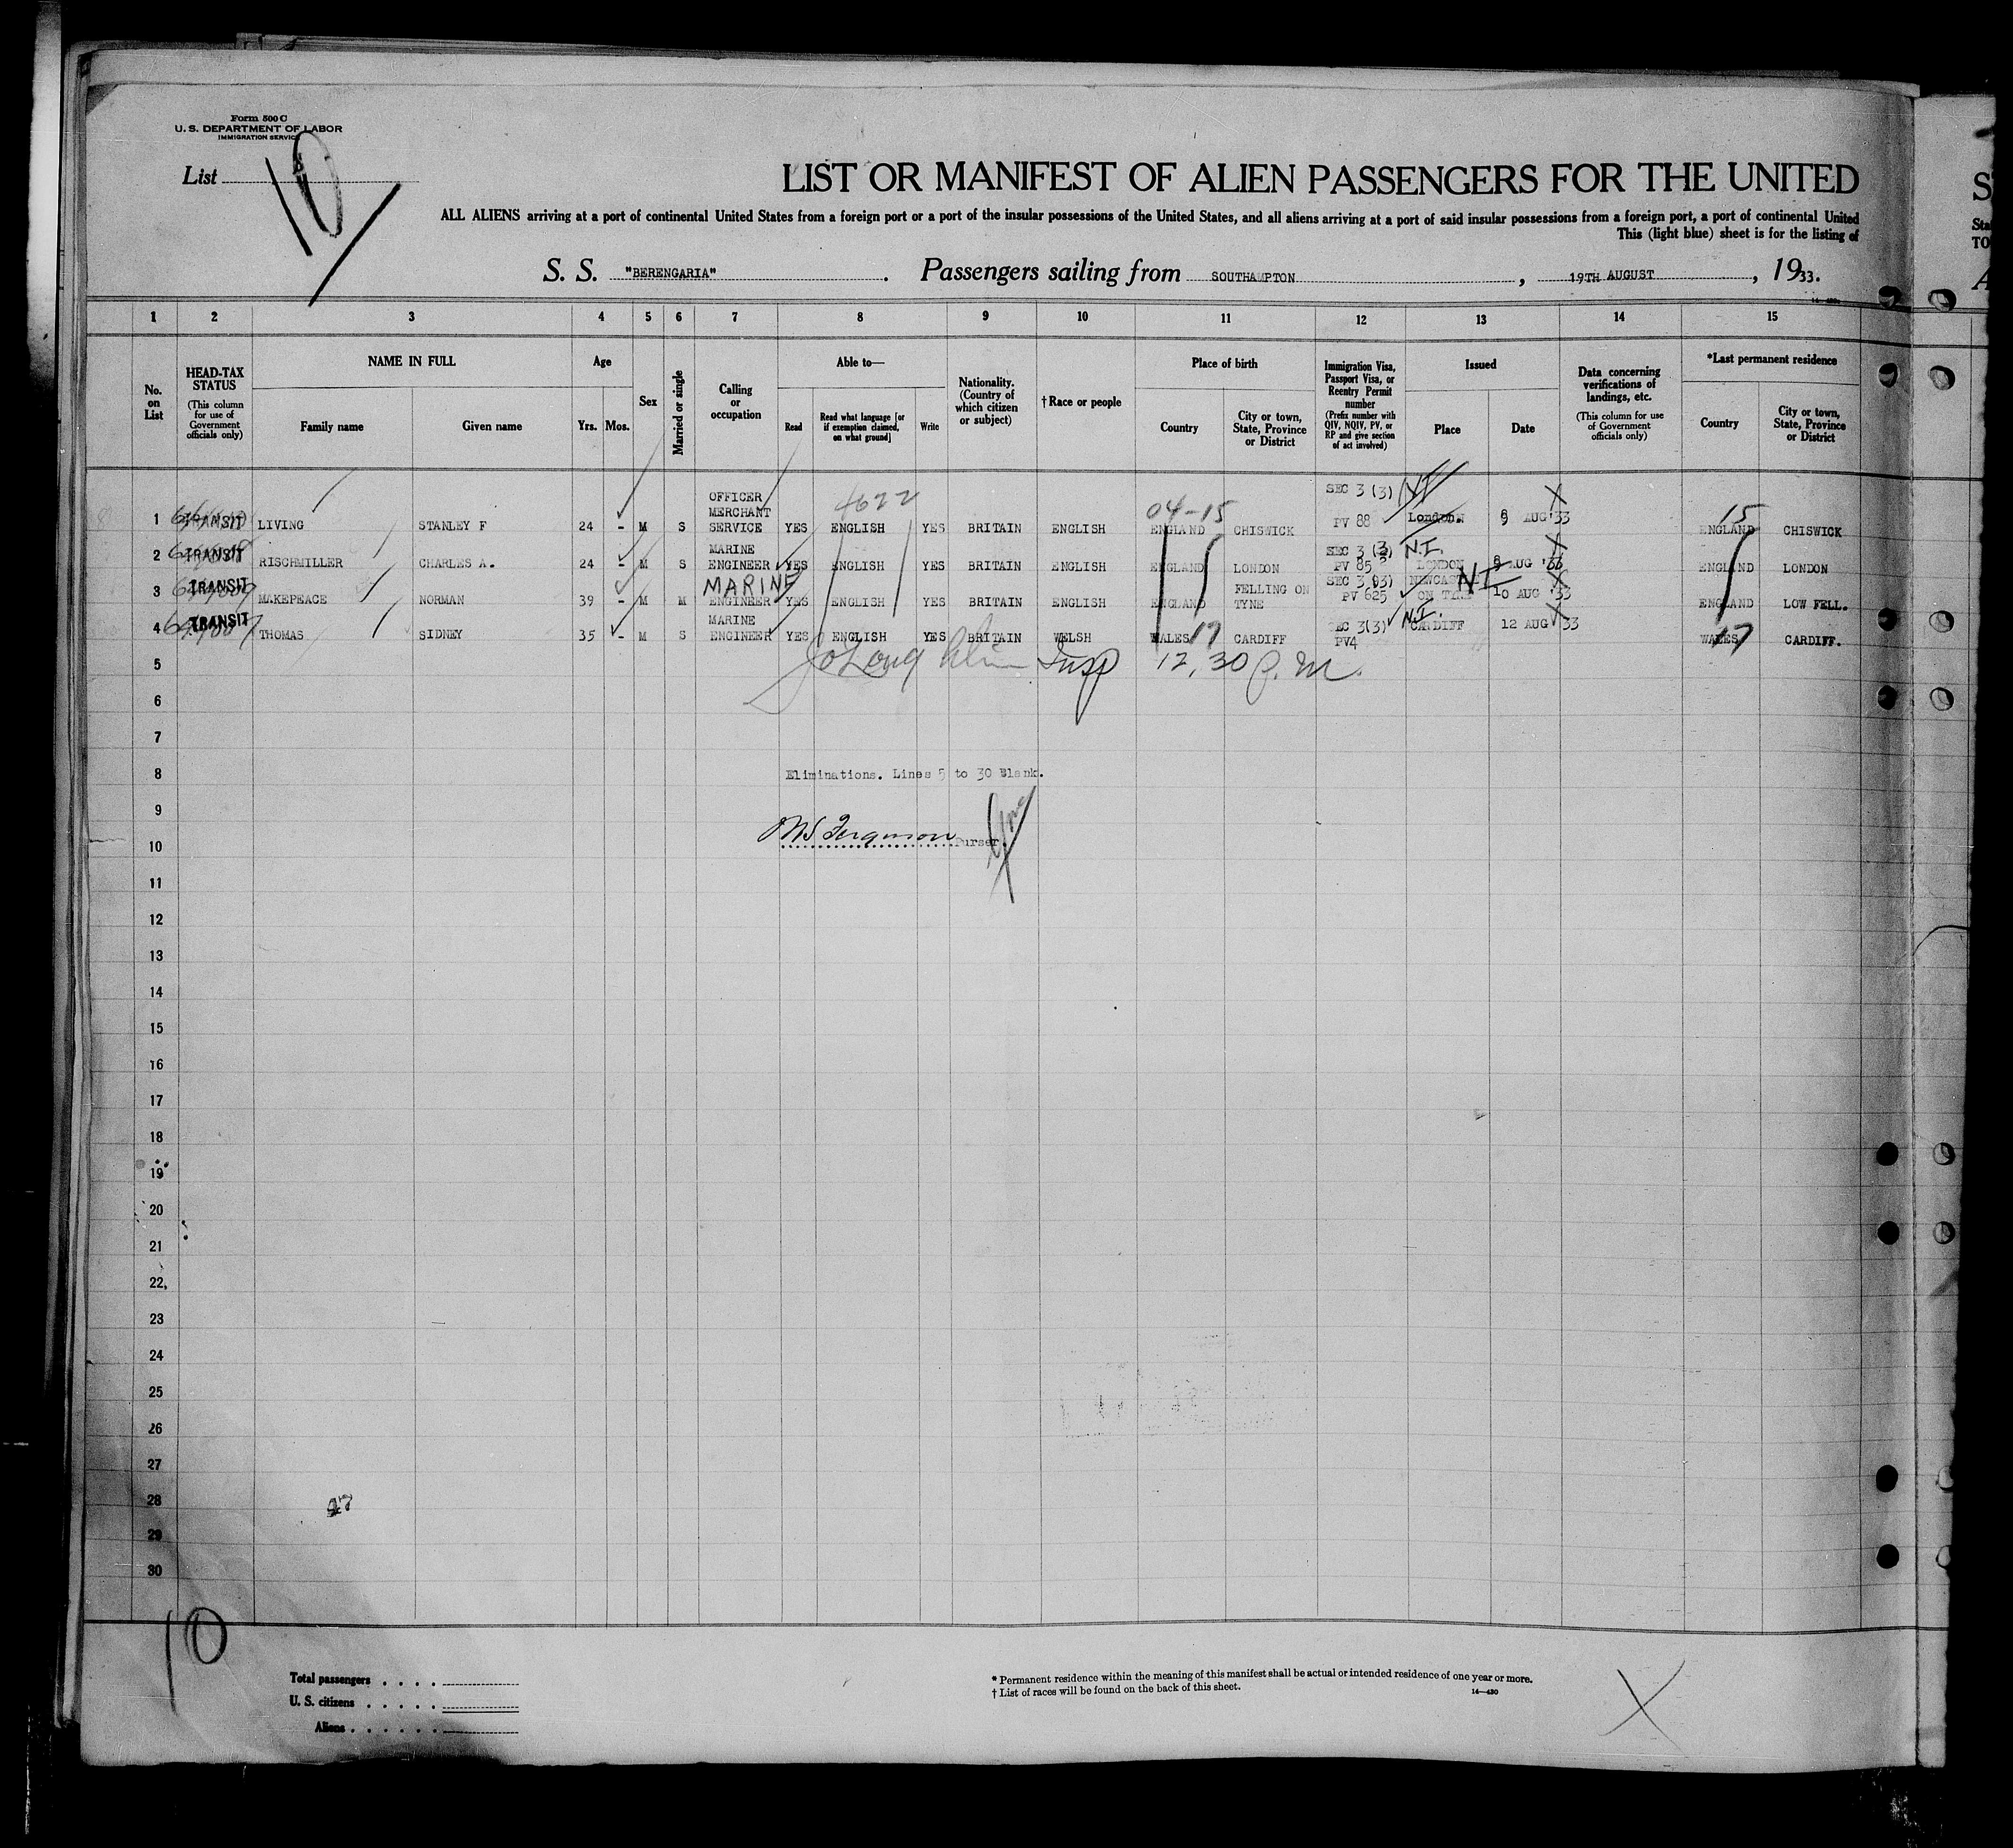 Form 500 C
U. S. DEPARTMENT OF LABOR
IMMIGRATION SERVICE
List 10
LIST OR MANIFEST OF ALIEN PASSENGERS FOR THE UNITED
ALL ALIENS arriving at a port of continental United States from a foreign port or a port of the insular possessions of the United States, and all aliens arriving at a port of said insular possessions from a foreign port, a port of continental United
This (light blue) sheet is for the listing of
S. S. "BERENGARIA" . Passengers sailing from SOUTHAMPTON , 19TH AUGUST , 1933.
1 2 3 4 5 6 7 8 9 10 11 12 13 14 15
No. on List
HEAD-TAX STATUS (This column for use of Government officials only)
NAME IN FULL Family name Given name
Age Yrs. Mos.
Sex
Married or single
Calling or occupation
Able to— Read Read what language [or if exemption claimed, on what ground] Write
Nationality. (Country of which citizen or subject)
† Race or people
Place of birth Country City or town, State, Province or District
Immigration Visa, Passport Visa, or Reentry Permit number (Prefix number with QIV, NQIV, PV, or RP and give section of act involved)
Issued Place Date
Data concerning verifications of landings, etc. (This column for use of Government officials only)
*Last permanent residence Country City or town, State, Province or District
4622 04-15 15
1 TRANSIT LIVING STANLEY F 24 - M S OFFICER MERCHANT SERVICE YES ENGLISH YES BRITAIN ENGLISH ENGLAND CHISWICK SEC 3 (3) PV 88 London. 9 AUG '33 ENGLAND CHISWICK
2 TRANSIT RISCHMILLER CHARLES A. 24 - M S MARINE ENGINEER YES ENGLISH YES BRITAIN ENGLISH ENGLAND LONDON SEC 3 (3) PV 85 N.I. LONDON 8 AUG '33 ENGLAND LONDON
3 TRANSIT MAKEPEACE NORMAN 39 - M M MARINE ENGINEER YES ENGLISH YES BRITAIN ENGLISH ENGLAND FELLING ON TYNE SEC 3 (3) PV 625 NEWCASTLE ON TYNE N.I. 10 AUG '33 ENGLAND LOW FELL.
4 TRANSIT THOMAS SIDNEY 35 - M S MARINE ENGINEER YES ENGLISH YES BRITAIN WELSH WALES 17 CARDIFF SEC 3(3) PV4 N.I. CARDIFF 12 AUG 33 WALES 17 CARDIFF.
5 Insp 12,30 P.M.
6
7
8 Eliminations. Lines 5 to 30 Blank.
9
10 Ferguson Purser.
11
12
13
14
15
16
17
18
19
20
21
22
23
24
25
26
27
28 47
29
30
10
Total passengers . . . .
U. S. citizens . . . . .
Aliens . . . . . .
* Permanent residence within the meaning of this manifest shall be actual or intended residence of one year or more.
† List of races will be found on the back of this sheet.
14—430